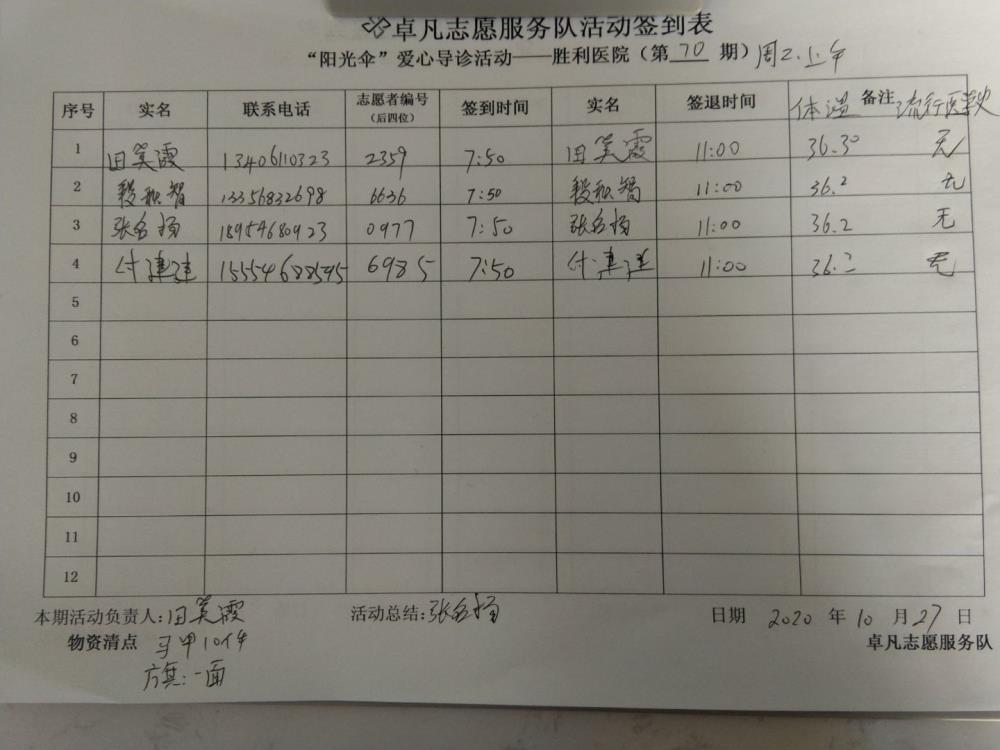 卓凡志愿服务队活动签到表
“阳光伞”爱心导诊活动——胜利医院（第70期）周2.上午
序号 实名 联系电话 志愿者编号（后四位） 签到时间 实名 签退时间 体温 备注 流行医学史
1 田美霞 13406110323 2359 7:50 田美霞 11:00 36.3° 无
2 13356832698 6636 7:50 11:00 36.2 无
3 张名扬 18954680923 0977 7:50 张名扬 11:00 36.2 无
4 付建莲 15554688595 6985 7:50 付建莲 11:00 无
5
6
7
8
9
10
11
12
本期活动负责人:田美霞 活动总结:张名扬 日期 2020 年 10 月 27 日
物资清点 马甲10件 卓凡志愿服务队
方旗:一面